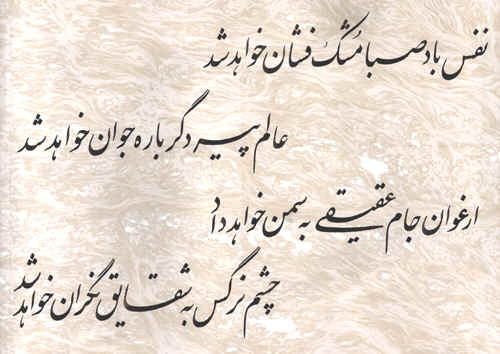 نفس باد صبا مُشک فشان خواهد شد
عالم پیر دگر باره جوان خواهد شد
ارغوان جام عقیقی به سمن خواهد داد
چشم نرگس به شقایق نگران خواهد شد